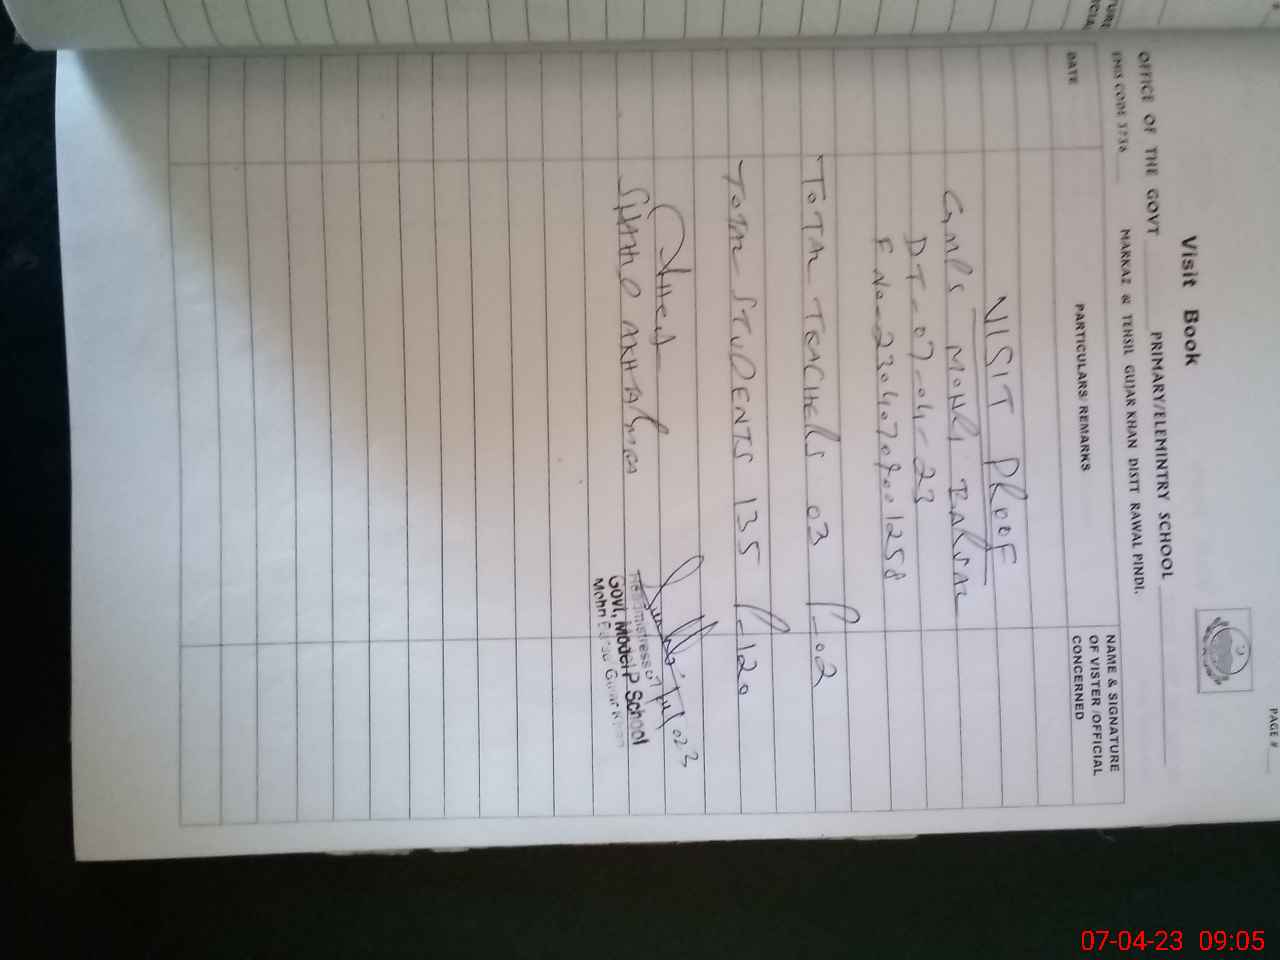 PAGE #
Visit Book
OFFICE OF THE GOVT PRIMARY/ELEMINTRY SCHOOL
EMIS CODE 3736 MARKAZ & TEHSIL GUJAR KHAN DISTT RAWAL PINDI.
DATE PARTICULARS/ REMARKS NAME & SIGNATURE OF VISTER /OFFICIAL CONCERNED
VISIT PROOF
GMPS MOHRI BARSAL
DT-07-04-23
F No-23040709001258
TOTAL TEACHERS 03 P-02
TOTAL STUDENTS 135 P-120
SHAHID
Headmistress
Govt. Model P School
07-04-23 09:05